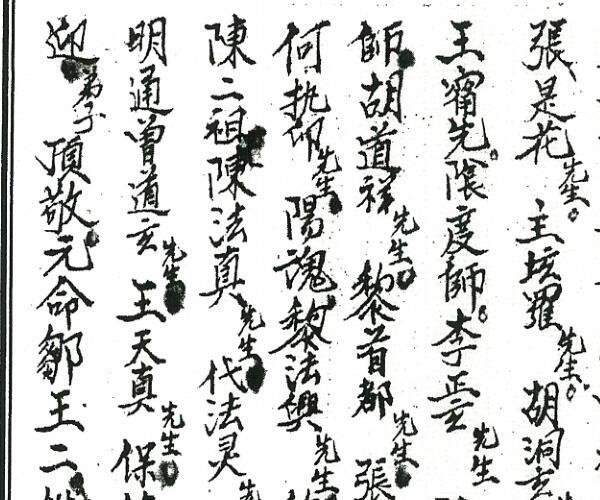 張是花先生。主坛羅先生。胡洞玄
王甯先。陰度師。李正玄先生
師胡道祥先生。黎首都先生 張
何执仰先生 陽魂黎法興先生
陳二祖陳法真先生 代法灵先
明通曾道玄先生 王天真先生 保
迎弟子頂敬元命鄒王二